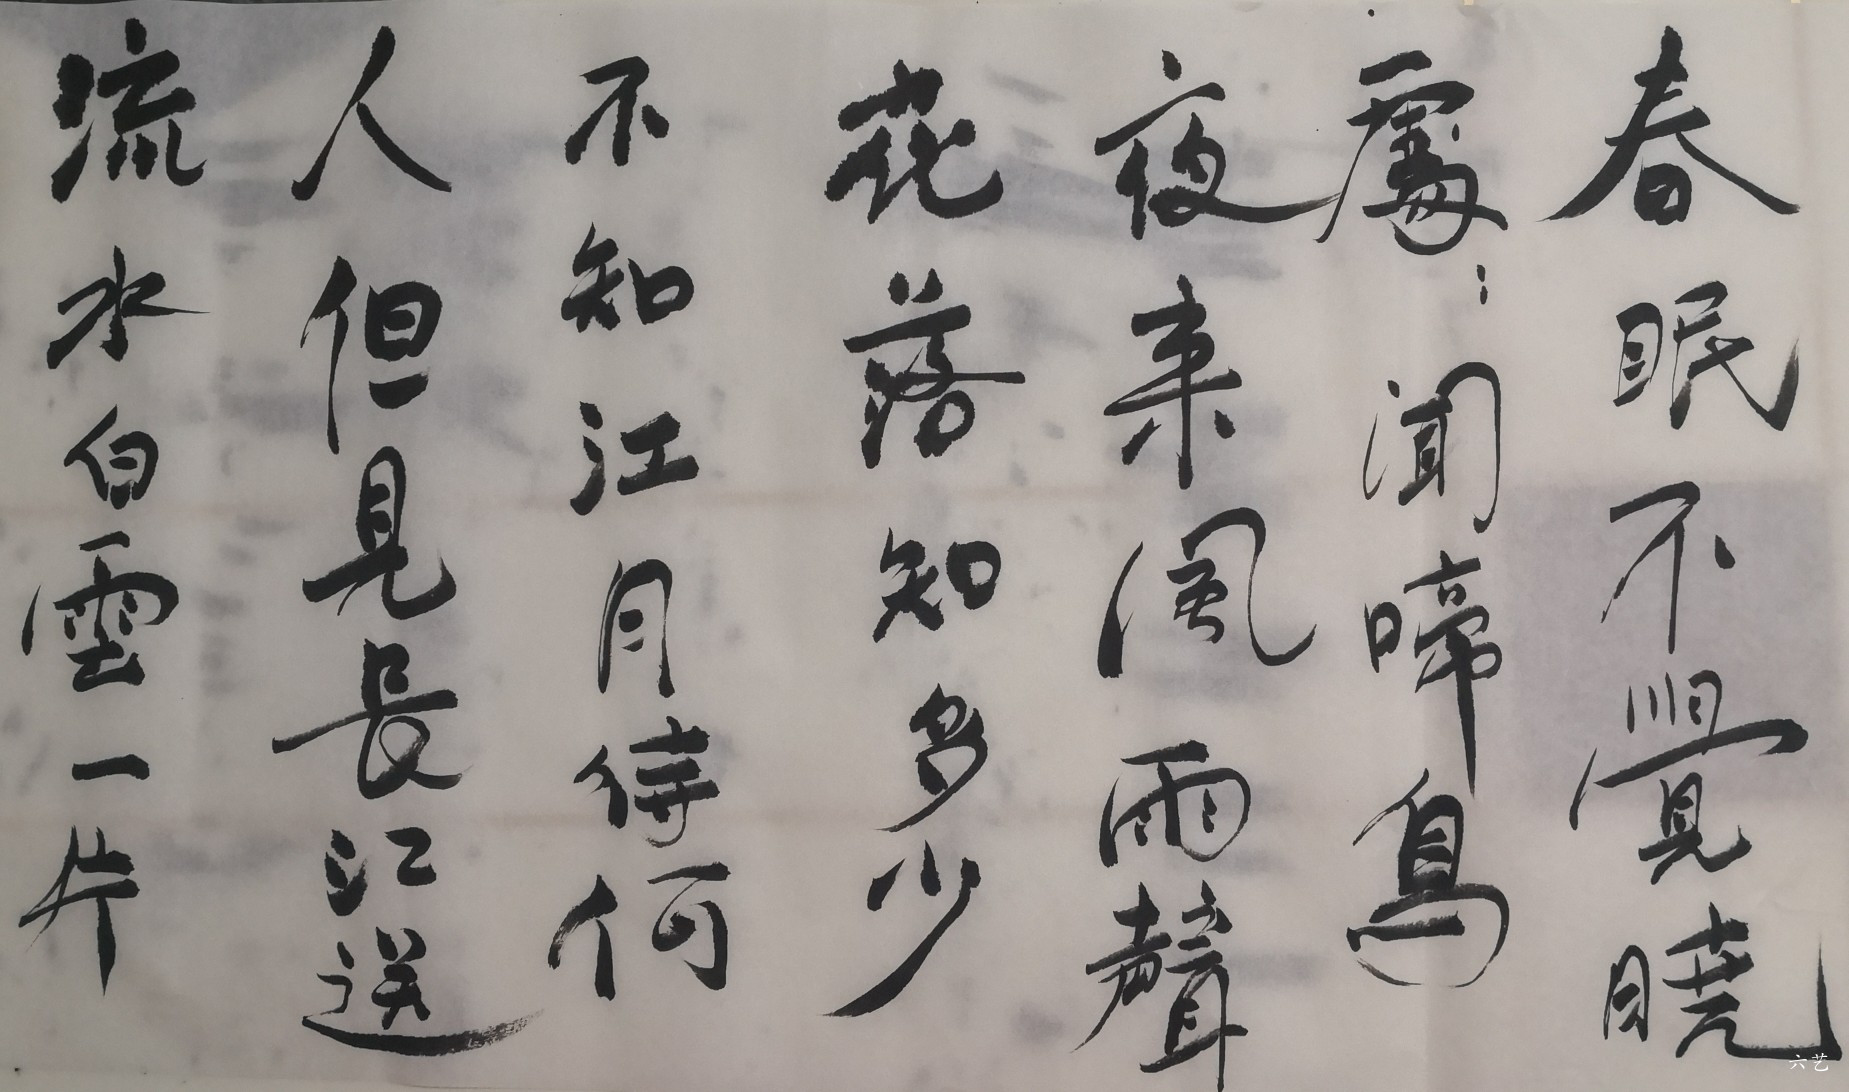 春眠不覺曉
處〻聞啼鳥
夜来風雨聲
花落知多少
不知江月待何
人但見長江送
流水白雲一片
六艺